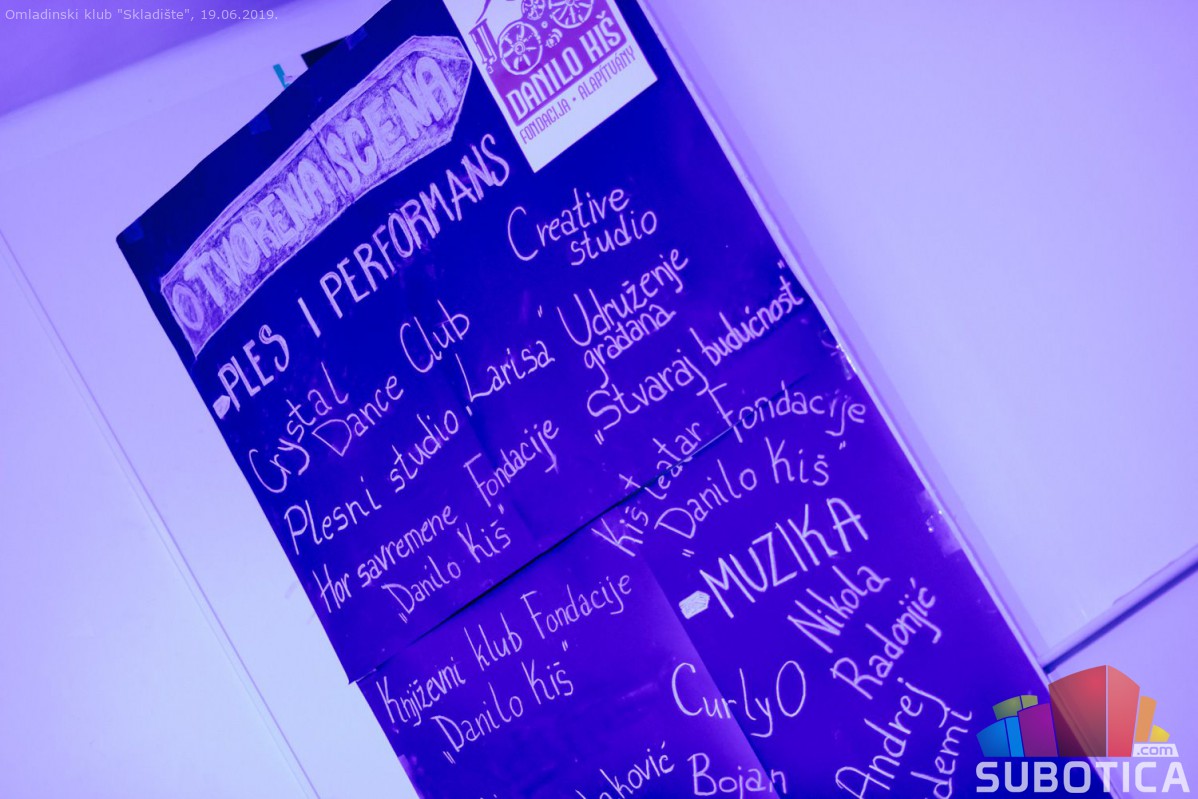 Omladinski klub "Skladište", 19.06.2019.
DANILO KIŠ
FONDACIJA • ALAPÍTVÁNY
OTVORENA SCENA
PLES I PERFORMANS
Crystal
Dance Club
Plesni studio „Larisa"
Hor savremene Fondacije
„Danilo Kiš"
Književni klub Fondacije
„Danilo Kiš"
Creative
studio
Udruženje
građana
„Stvaraj budućnost"
Kiš teatar Fondacije
„Danilo Kiš"
MUZIKA
Nikola
Radonjić
CurlyO
Andrej
Bojan
SUBOTICA
.com